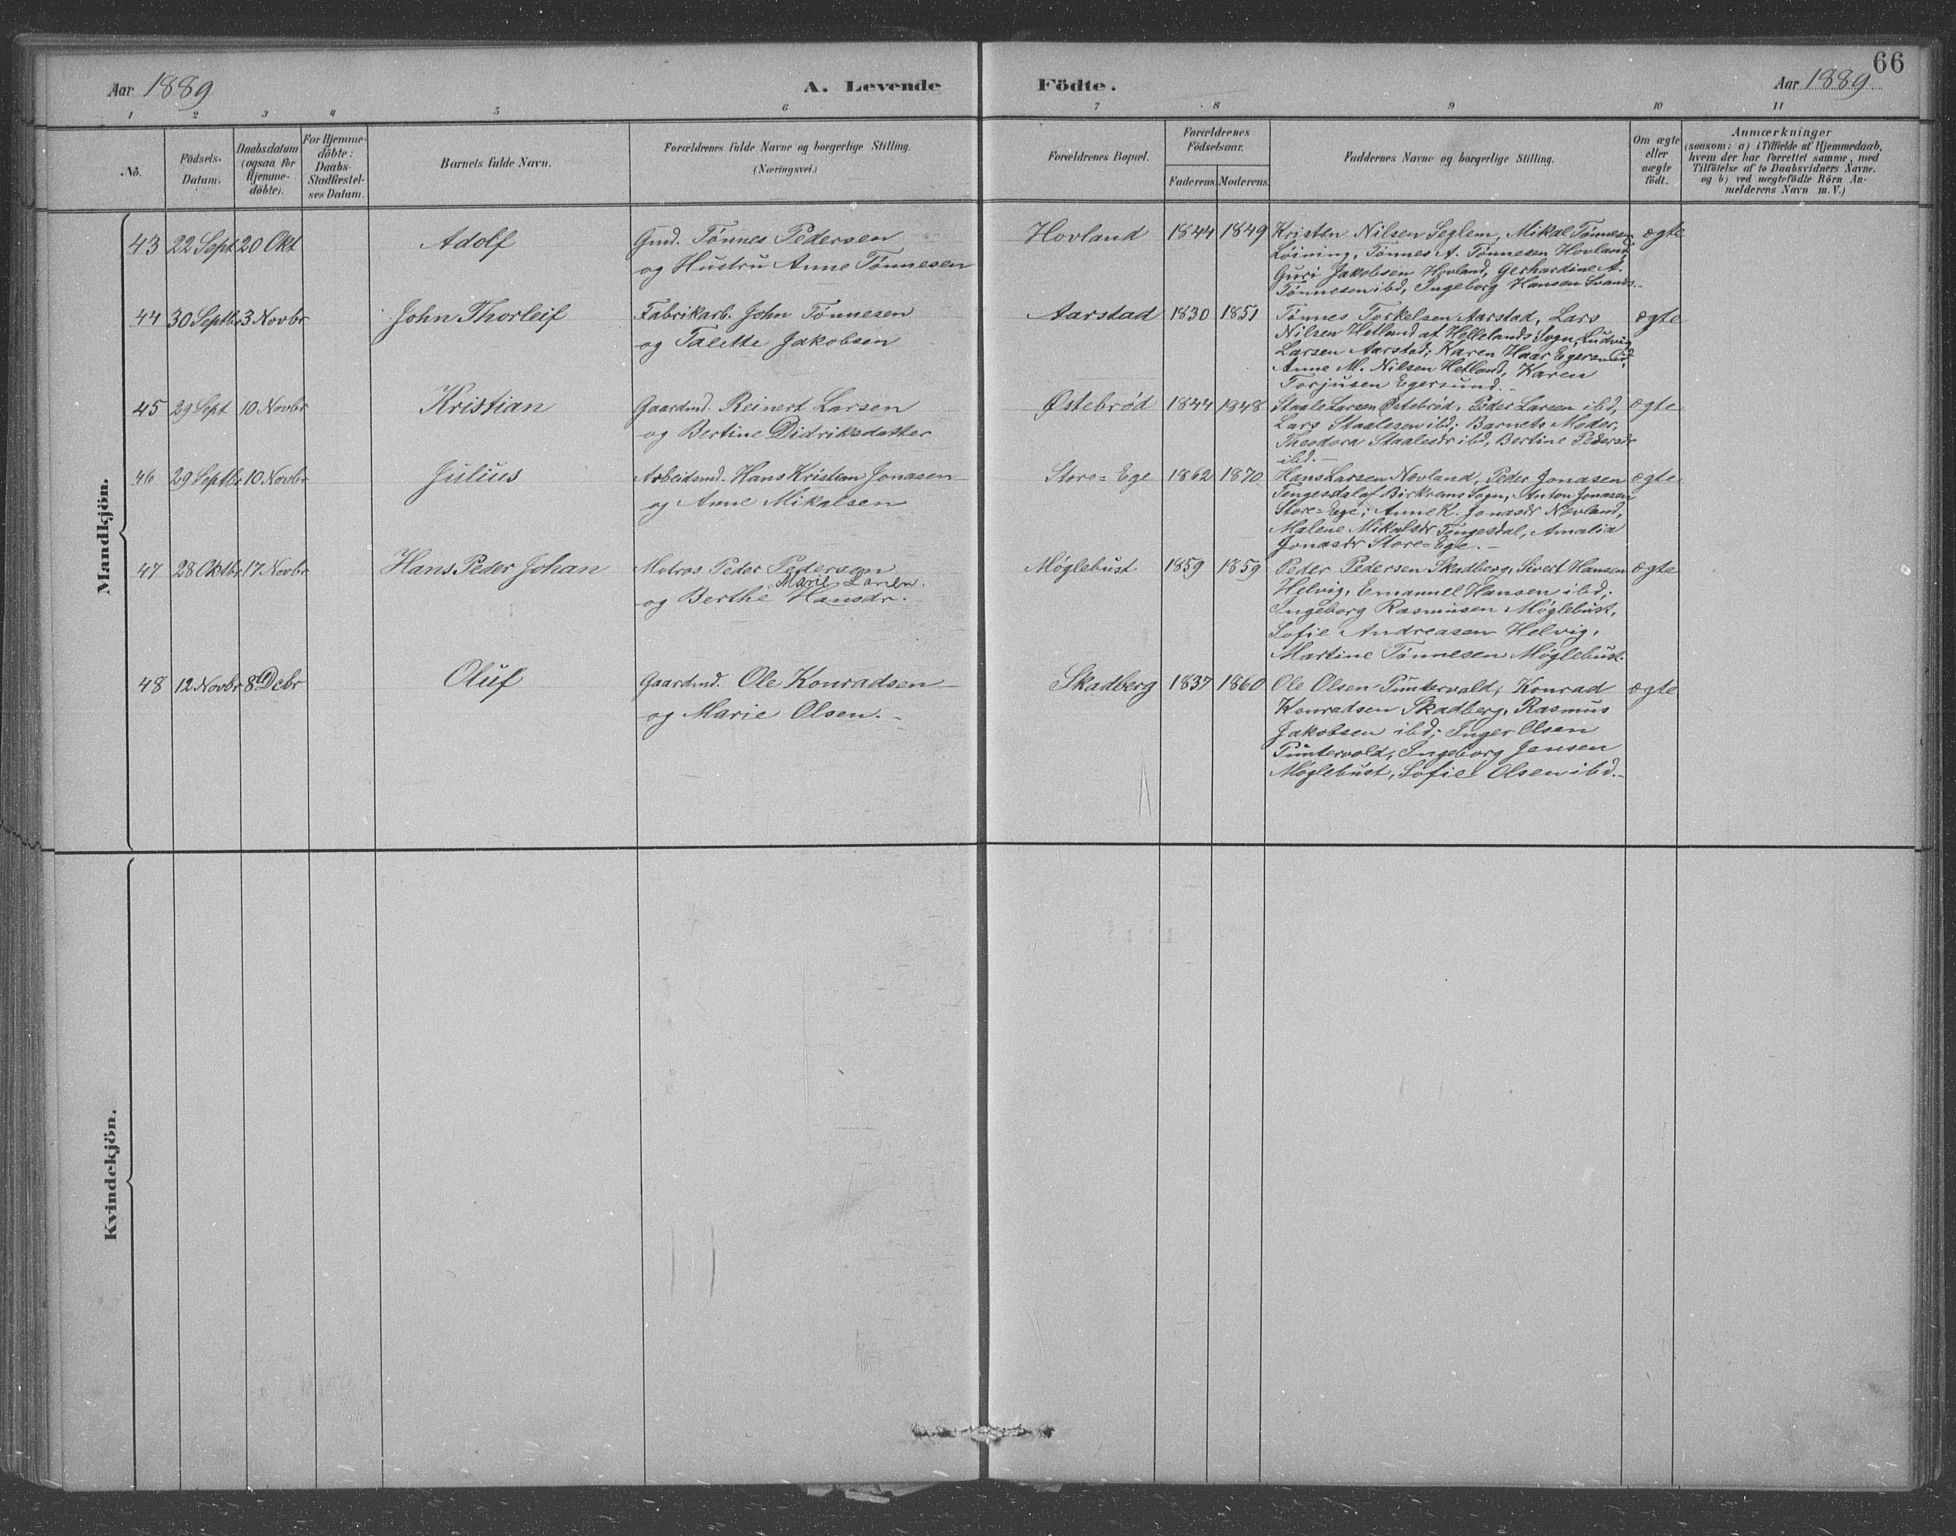 66
Aar 1889
A. Levende
Födte.
Aar 1889
1 2 3 4 5 6 7 8 9 10 11
No.
Födsels-
Datum.
Daabsdatum
(ogsaa for
Hjemme-
döbte).
For Hjemme-
döbte:
Daabs-
Stadfæstel-
ses Datum.
Barnets fulde Navn.
Forældrenes fulde Navne og borgerlige Stilling.
(Næringsvei.)
Forældrenes Bopæl.
Forældrenes
Födselsaar.
Faderens. Moderens.
Faddernes Navne og borgerlige Stilling.
Om ægte
eller
uægte
födt.
Anmærkninger
(saasom: a) i Tilfælde af Hjemmedaab,
hvem der har forrettet samme, med
Tilföielse af to Daabsvidners Navne.
og b) ved uægtefödte Börn An-
melderens Navn m. V.)
Mandkjön.
43 22 Sept 20 Okt
Adolf
Gmd. Tønnes Pedersen
og Hustru Anne Tønnesen
Hovland
1844 1849
Kristen Nilsen Seglem, Mikal Tønnesen
Løining, Tønnes A. Tønnesen Hovland,
Guri Jakobsen Hovland, Gerhardine A.
Tønnesen ibd, Ingeborg Hansen Svands.
ægte
44 30 Septbr 3 Novbr
John Thorleif
Fabrikarb. John Tønnesen
og Talette Jakobsen
Aarstad
1830 1851
Tønnes Torkelsen Aarstad, Lars
Nilsen Hetland af Hellelands Sogn, Ludvig
Larsen Aarstad; Karen Haar Egersund,
Anne M. Nilsen Hetland, Karen
Torjusen Egersund.-
ægte
45 29 Sept 10 Novbr
Kristian
Gaardmd. Reinert Larsen
og Bertine Didriksdatter
Østebrød
1844 1848
Staale Larsen Østebrød, Peder Larsen ibd,
Lars Staalesen ibd; Barnets Moder,
Theodora Staalesdr ibd, Bertine Pedersdr
ibd.-
ægte
46 29 Septbr 10 Novbr
Julius
Arbeidsmd. Hans Kristian Jonasen
og Anne Mikalsen
Store=Ege
1862 1870
Hans Larsen Nevland, Peder Jonasen
Tengesdal af Birkrems Sogn, Anton Jonasen
Store=Ege; Anne K. Jonasdr Nevland,
Malene Mikalsdr Tengesdal, Amalia
Jonasdr Store=Ege.-
ægte
47 28 Oktbr 17 Novbr
Hans Peder Johan
Matros Peder Pedersen
Marie Larsen.
og Berthe Hansdr.
Møglebust.
1859 1859
Peder Pedersen Skadberg, Sivert Hansen
Helvig, Emanuel Hansen ibd;
Ingeborg Rasmusen Møglebust,
Sofie Andreasen Helvig,
Martine Tønnesen Møglebust.
ægte
48 12 Novbr 8 Debr
Oluf
Gaardmd. Ole Konradsen
og Marie Olsen.-
Skadberg
1837 1860
Ole Olsen Puntervald, Konrad
Konradsen Skadberg, Rasmus
Jakobsen ibd; Inger Olsen
Puntervold, Ingeborg Jansen
Møglebust, Sofie Olsen ibd.-
ægte
Kvindekjön.